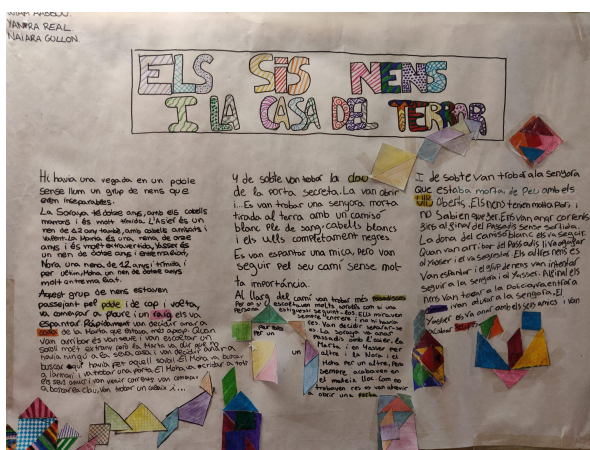 YANIRA REAL.
NAIARA GULLON.
ELS SIS NENS
I LA CASA DEL TERROR
Hi havia una vegada en un poble
sense llum un grup de nens que
eren inseparables.
La Soraya té dotze anys, amb els cabells
marrons i és molt tímida. L'Asier és un
nen de 12 anys també, amb cabells arrissats i
valent. La Marta és una nena de onze
anys i és molt extrovertida, Yasser és
un nen de dotze anys i entremaliat,
Nora, una nena de 12 anys tímida i
per últim, Moha, un nen de dotze anys
molt entremaliat.
Aquest grup de nens estaven
passejant pel poble i de cop i volta,
va començar a ploure i un raig els va
espantar. Ràpidament van decidir anar a
casa de la Marta que estava més aprop. Quan
van arribar es van seure i van escoltar un
soroll molt extrany però la Marta va dir que no
havia ningú a la seva casa i van decidir anar a
buscar què havia per aquell soroll. El Moha va buscar
a l'armari i va trobar una porta. El Moha va cridar a tots
els seus amics i van venir corrents. van començar
a buscar la clau, van trobar un calaix i...
Y de sobte van trobar la clau
de la porta secreta. La van obrir
i... Es van trobar una senyora morta
tirada al terra amb un camisó
blanc ple de sang, cabells blancs
i els ulls completament negres.
Es van espantar una mica, però van
seguir pel seu camí sense mol-
ta importància.
Al llarg del camí van trobar més passadissos
persona estigués seguint-los. Ells miraven
sempre enrere i no hi havia
res. Van decidir separar-se
la Soraya per un
passadís amb l'Asier, la
Marta, i en Yasser per
altre i la Nora i el
Moha per un altre, Però
sempre acabaven en
el mateix lloc. Com no
trobaven res es van atrevir
a obrir una porta
I de sobte van trobar a la senyora
que estaba morta de Peu amb els
ulls oberts, Els nens tenien molta Por i
no Sabien que fer. Ells van anar corrents
fins al final del Passadis sense sortida.
La dona del camisó blanc els va seguir.
Quan van arribar del Passadis li va agafar
al Yasser i el va segrestar. Els altres nens es
Van espantar i el grup de nens van intentar
seguir a la senyora i al Yasser. Al final els
nens van trobar a la policia van entrar
i van aturar a la senyora. El
Yasser es va anar amb els seus amics i van